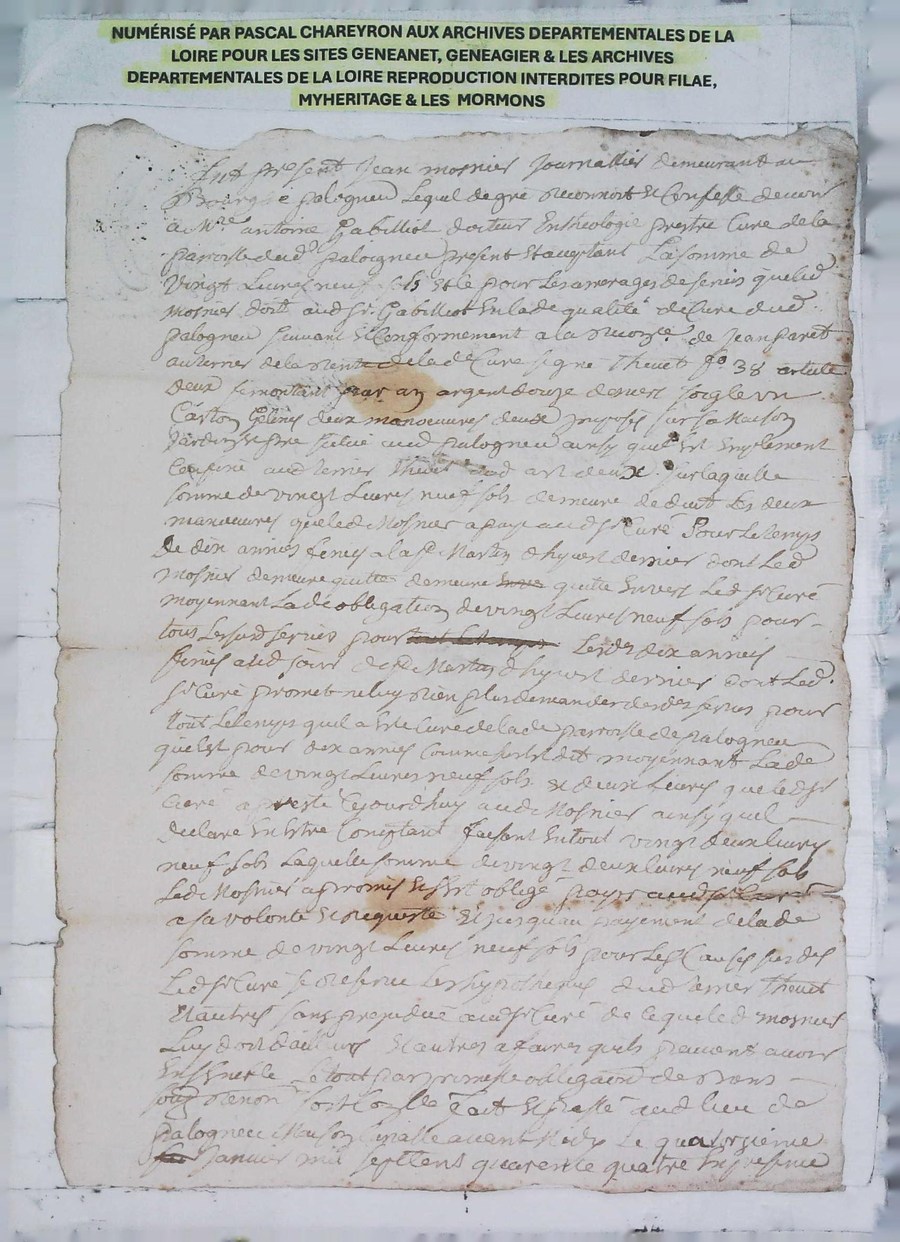 NUMÉRISÉ PAR PASCAL CHAREYRON AUX ARCHIVES DEPARTEMENTALES DE LA
LOIRE POUR LES SITES GENEANET, GENEAGIER & LES ARCHIVES
DEPARTEMENTALES DE LA LOIRE REPRODUCTION INTERDITES POUR FILAE,
MYHERITAGE & LES MORMONS
fut present Jean mosnier Journallier demeurant au
Bourg de palogneu Lequel de gré reconnoit et Confesse devoir
a Mre antoine Gabilliot docteur En theologie prestre Curé de la
parroisse dud palogneu present et acceptant La somme de
Vingt Livres neuf sols pour Les arrerages de servis que led
mosnier doit aud sr Gabilliot En lade qualité de Curé dud
palogneu suivant et Conformement a la de Jean paret
au terrier de la rente de lade Cure signé Theuet fo 38 article
deux se montant par an argent douze deniers soigle un
Carton deux manoeuvres imposés sur sa Maison
Jardin situé aud palogneu ainsy quil est amplement
Confiné aud terrier Theuet aud art deux. sur laquelle
somme de vingt Livres neuf sols demeure deduit Les deux
manoeuvres que led Mosnier a payé aud sr Curé Pour Le temps
De dix années finies a la st Martin d'hyvert dernier dont Led
mosnier demeure quitte demeure quitte Envers Led sr Curé
moyennant La de obligation de vingt Livres neuf sols pour
tous Les servies pour Lesdes dix années
finies aud jour de st Martin d'hyvert dernier dont Led
sr Curé promet ne luy rien plus demander des des servis pour
tout Le temps quil a Esté Curé de lade parroisse de palogneu
quil est pour dix années Comme sus est dit moyennant Lade
somme de vingt Livres neuf sols et deux Livres que led sr
Curé a presté Cejourdhuy aud Mosnier ainsy quil
declare En Estre Comptant faisant En tout vingt deux livres
neuf sols Laquelle somme de vingt deux livres neuf sols
Led Mosnier a promis et s'est obligé payer aud sr Curé
a sa volonté et requeste Et jusquau payement de lade
somme de vingt Livres neuf sols pour Les Causes sus des
Led sr Curé se reserve Les hypotheques dud terrier Theuet
Et autres sans prejudice aud sr Curé de ce que led mosnier
Luy doit dailleurs Et autres affaires quils peuvent avoir
Ensemble Le tout par promesse obligaon de biens
fait et passé aud lieu de
palogneu Maison avant Midy Le quatorzieme
Janvier mil sept Cens quarente quatre En presence